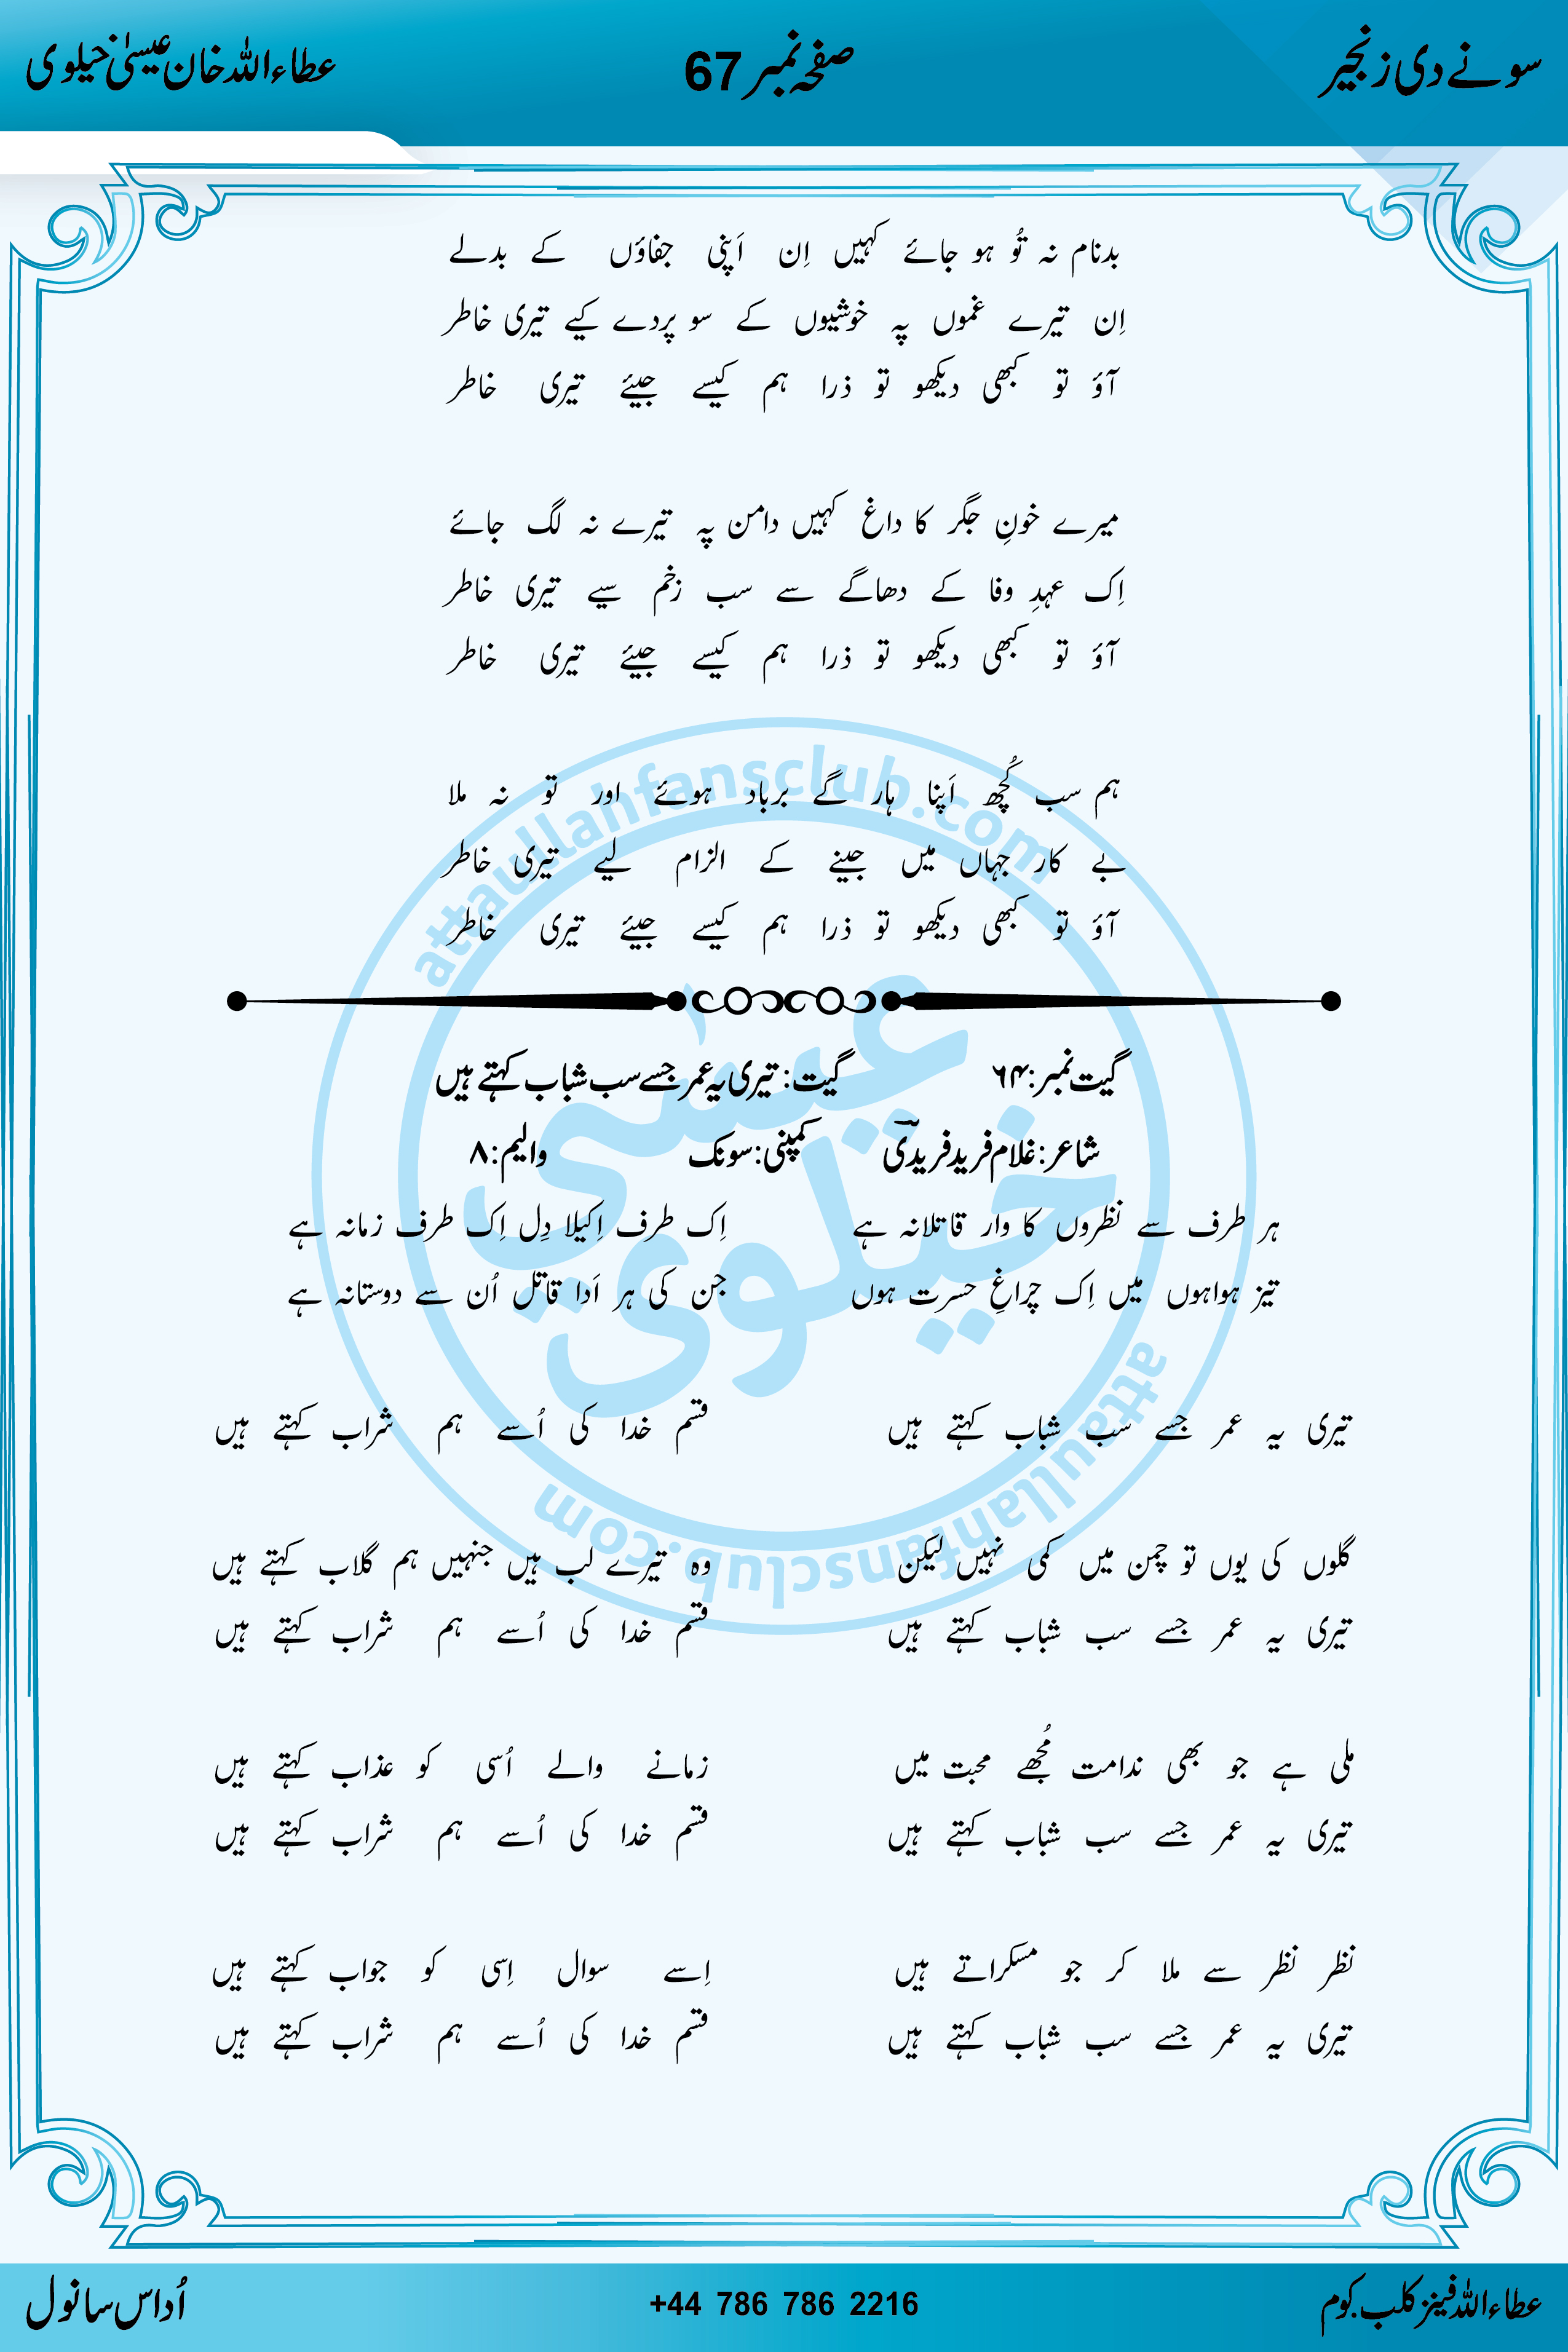 سونے دی زنجیر
صفحہ نمبر 67
عطاءاللہ خان عیسیٰ خیلوی
بدنام نہ تُو ہو جائے کہیں اِن اَپنی جفاؤں کے بدلے
اِن تیرے غموں پہ خوشیوں کے سو پردے کیے تیری خاطر
آؤ تو کبھی دیکھو تو ذرا ہم کیسے جیئے تیری خاطر
میرے خونِ جگر کا داغ کہیں دامن پہ تیرے نہ لگ جائے
اِک عہدِ وفا کے دھاگے سے سب زخم سیے تیری خاطر
آؤ تو کبھی دیکھو تو ذرا ہم کیسے جیئے تیری خاطر
ہم سب کُچھ اَپنا ہار گے برباد ہوئے اور تو نہ ملا
بے کار جہاں میں جینے کے الزام لیے تیری خاطر
آؤ تو کبھی دیکھو تو ذرا ہم کیسے جیئے تیری خاطر
گیت نمبر:۶۴ گیت: تیری یہ عمر جسے سب شباب کہتے ہیں
شاعر: غلام فرید فریدیؔ کمپنی: سونک والیم:۸
ہر طرف سے نظروں کا وار قاتلانہ ہے اِک طرف اِکیلا دِل اِک طرف زمانہ ہے
تیز ہواہوں میں اِک چراغِ حسرت ہوں جن کی ہر اَدا قاتل اُن سے دوستانہ ہے
تیری یہ عمر جسے سب شباب کہتے ہیں قسم خدا کی اُسے ہم شراب کہتے ہیں
گلوں کی یوں تو چمن میں کمی نہیں لیکن وہ تیرے لب ہیں جنہیں ہم گلاب کہتے ہیں
تیری یہ عمر جسے سب شباب کہتے ہیں قسم خدا کی اُسے ہم شراب کہتے ہیں
ملی ہے جو بھی ندامت مُجھے محبت میں زمانے والے اُسی کو عذاب کہتے ہیں
تیری یہ عمر جسے سب شباب کہتے ہیں قسم خدا کی اُسے ہم شراب کہتے ہیں
نظر نظر سے ملا کر جو مسکراتے ہیں اِسے سوال اِسی کو جواب کہتے ہیں
تیری یہ عمر جسے سب شباب کہتے ہیں قسم خدا کی اُسے ہم شراب کہتے ہیں
attaullahfansclub.com
عیسیٰ
خیلوی
attaullahfansclub.com
عطاءاللہ فینز کلب.کوم
+44 786 786 2216
اُداس سانول